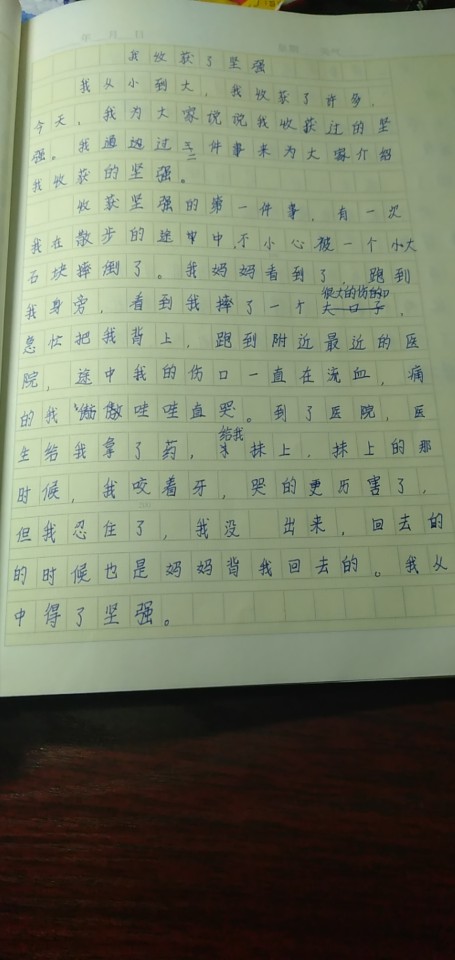 年 月 日 星期 天气
我收获了坚强
我从小到大，我收获了许多，
今天，我为大家说说我收获过的坚
强。我通过过二件事来为大家介绍
我收获的坚强。
收获坚强的第一件事，有一次
我在散步的途中中，不小心被一个小大
石块摔倒了。我妈妈看到了，跑到
我身旁，看到我摔了一个很大的伤的口，
急忙把我背上，跑到附近最近的医
院，途中我的伤口一直在流血，痛
的我嗷嗷哇哇直哭。到了医院，医
生给我拿了药，给我抹上，抹上的那
时候，我咬着牙，哭的更厉害了，
但我忍住了，我没 出来，回去的
的时候也是妈妈背我回去的。我从
中得了坚强。